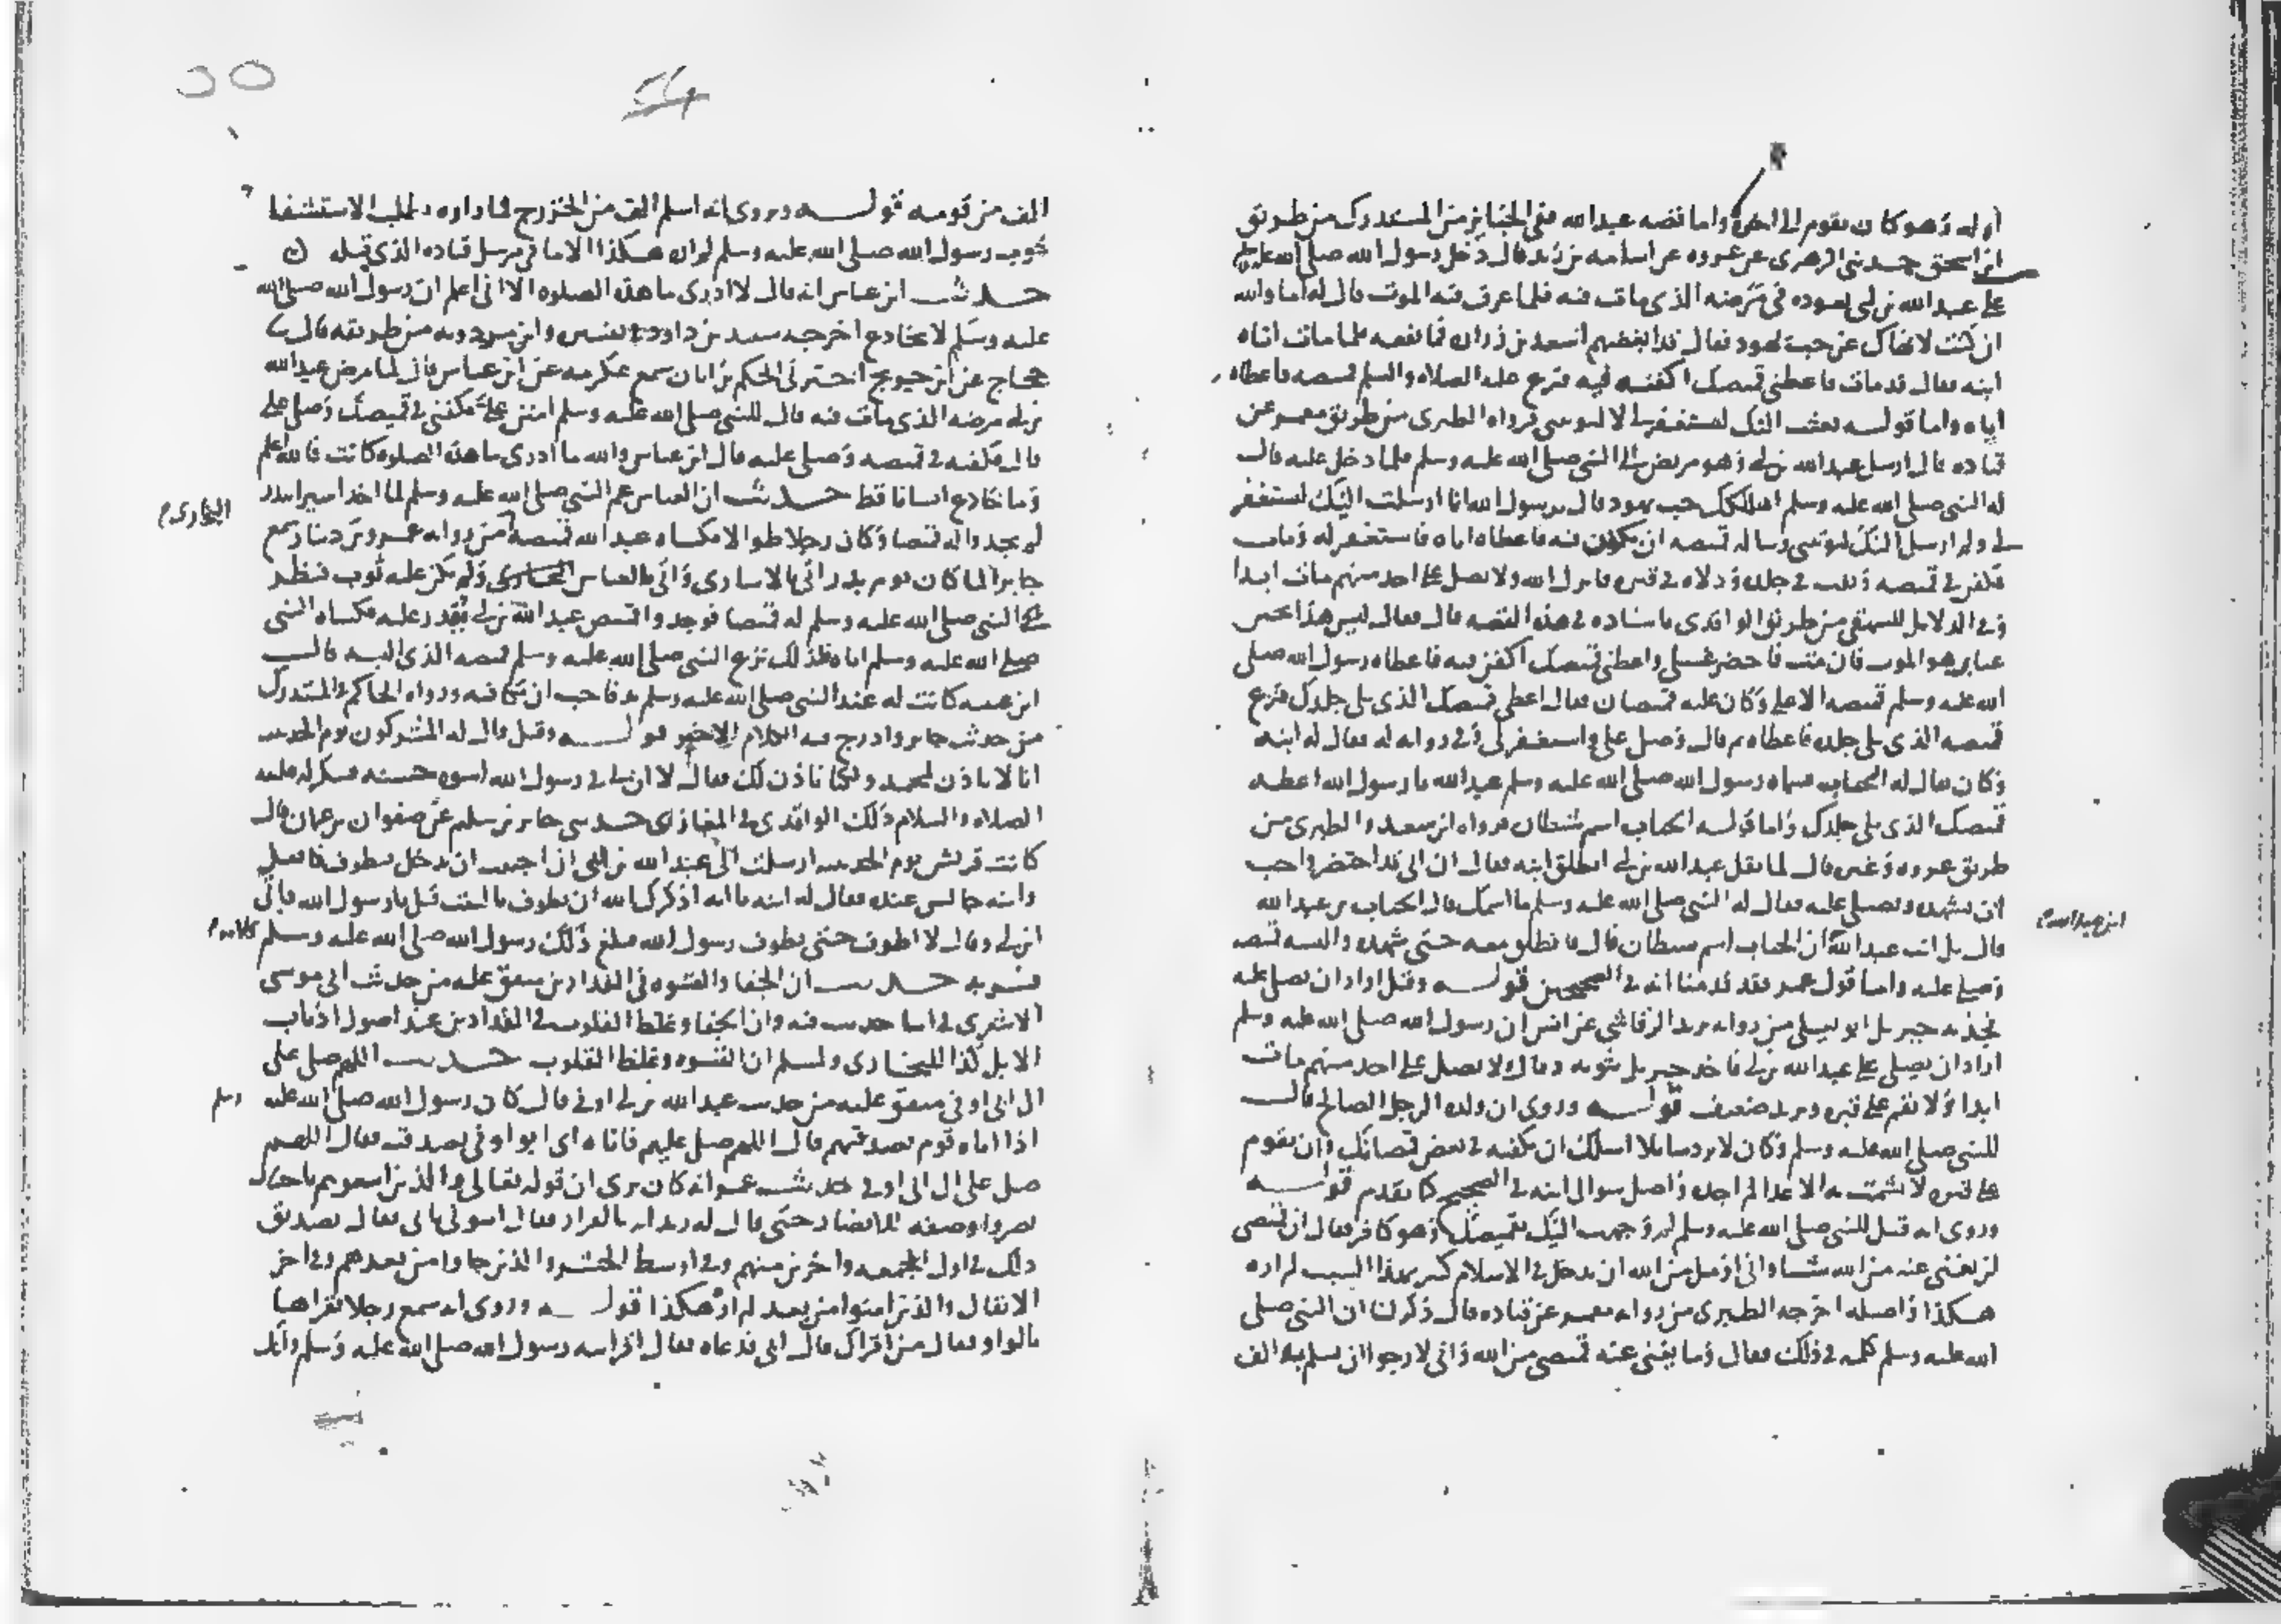 أو له وهو كان يقوم إلى آخره وأما قصه عبد الله ففي الجنايز من المستدرك من طريق
ابن اسحق حدثني الزهري عن عروه عن اسامه بن زيد قال دخل رسول الله صلى الله عليه
على عبد الله بن ابي يعوده في مرضه الذي مات فيه فلما عرف فيه الموت قال له أما والله
ان كنت لانهاك عن حب يهود فقال قد ابغضهم اسعد بن زراره فما نفعه فلما مات اتاه
ابنه فقال قد مات فاعطني قميصك اكفنه فيه فنزع عليه الصلاه والسلم قميصه فاعطاه
اياه واما قوله بعثت اليك لتستغفر لي لا لتوبني فرواه الطبري من طريق معمر عن
قتاده قال ارسل عبد الله بن ابي وهو مريض الى النبي صلى الله عليه وسلم فلما دخل عليه قال
له النبي صلى الله عليه وسلم اهلكك حب يهود قال يرسول الله انما ارسلت اليك لتستغفر
لي ولم ارسل اليك لتوبني وساله قميصه ان يكفن فيه فاعطاه اياه فاستغفر له ومات
فكفن في قميصه ونفث في جلده ودلاه في قبره فانزل الله ولا تصل على احد منهم مات ابدا
وفي الدلايل للبيهقي من طريق الواقدي باسناده في هذه القصه قال فقال ليس هذا بحين
عتاب هو الموت فان مت فاحضر غسلي واعطني قميصك اكفن فيه فاعطاه رسول الله صلى
الله عليه وسلم قميصه الاعلى وكان عليه قميصان فقال اعطني قميصك الذي يلي جلدك فنزع
قميصه الذي يلي جلده فاعطاه ثم قال وصل علي واستغفر لي وفي روايه له فقال له ابنه
وكان يقال له الحباب فسماه رسول الله صلى الله عليه وسلم عبد الله يا رسول الله اعطه
قميصك الذي يلي جلدك واما قوله الحباب اسم شيطان فرواه ابن سعد والطبري من
طريق عروه وغيره قال لما ثقل عبد الله بن ابي انطلق ابنه فقال ان ابي قد احتضر فاحب
ان تشهده وتصلي عليه فقال له النبي صلى الله عليه وسلم ما اسمك قال الحباب بن عبد الله
ابن عبد الله
قال بل انت عبد الله ان الحباب اسم شيطان قال فانطلق معه حتى شهده والبسه قميصه
وصلى عليه واما قول عمر فقد قدمنا انه في الصحيحين قوله وقيل اراد ان يصلي عليه
فجذبه جبريل ابو يعلى من روايه يزيد الرقاشي عن انس ان رسول الله صلى الله عليه وسلم
اراد ان يصلي على عبد الله بن ابي فاخذ جبريل بثوبه وقال ولا تصل على احد منهم مات
ابدا ولا تقم على قبره ويزيد ضعيف قوله وروي ان ولده الرجل الصالح قال
للنبي صلى الله عليه وسلم وكان لا يرد سايلا اسلك ان تكفنه في بعض قمصانك وان تقوم
على قبره لا تشمت به الاعدا لم اجده واصل سوال ابنه في الصحيح كما تقدم قوله
وروي انه قيل للنبي صلى الله عليه وسلم لم وجهت اليك بقميصك وهو كافر فقال ان قميصي
لن يغني عنه من الله شيا واني اؤمل من الله ان يدخل في الاسلام كثير بهذا السبب لم اره
هكذا واصله اخرجه الطبري من روايه معمر عن قتاده قال ذكر لنا ان النبي صلى
الله عليه وسلم كلم في ذلك فقال وما يغني عنه قميصي من الله واني لارجوا ان يسلم به الف
54
55
الف من قومه قوله ويروى انه اسلم الف من الخزرج لما راوه طلب الاستشفا
بثوب رسول الله صلى الله عليه وسلم لم اره هكذا الا ما في مرسل قتاده الذي قبله
حديث ابن عباس انه قال لا ادري ما هذه الصلوه الا اني اعلم ان رسول الله صلى الله
عليه وسلم لا يخادع اخرجه سنيد بن داود في تفسيره وابن مردويه من طريقه قال
حجاج عن ابن جريج اخبرني الحكم بن ابان سمع عكرمه عن ابن عباس قال لما مرض عبد الله
بن ابي مرضه الذي مات فيه قال للنبي صلى الله عليه وسلم امنن علي فكفني في قميصك وصل علي
قال فكفنه في قميصه وصلى عليه قال ابن عباس والله ما ادري ما هذه الصلوه كانت فالله اعلم
وما خادع انسانا قط حديث ان العباس عم النبي صلى الله عليه وسلم لما اخذ اسيرا ببدر
البخاري
لم يجدوا له قميصا وكان رجلا طوالا فكساه عبد الله قميصه من روايه عمرو بن دينار سمع
جابرا لما كان يوم بدر اتي بالاسارى واتي بالعباس ولم يكن عليه ثوب فنظر
النبي صلى الله عليه وسلم له قميصا فوجدوا قميص عبد الله بن ابي يقدر عليه فكساه النبي
صلى الله عليه وسلم اياه فلذلك نزع النبي صلى الله عليه وسلم قميصه الذي البسه قال
ابن عيينه كانت له عند النبي صلى الله عليه وسلم يد فاحب ان يكافيه ورواه الحاكم في المستدرك
من حديث جابر وادرج فيه الكلام الاخير قوله وقيل قال له المشركون يوم الحديبيه
انا لا ناذن لمحمد ولكنا ناذن لك فقال لا ان لي في رسول الله اسوه حسنه فشكر له عليه
الصلاه والسلام ذلك الواقدي في المغازي حدثني جابر بن سليم عن صفوان بن عثمان قال
كانت قريش يوم الحديبيه ارسلت الى عبد الله بن ابي ان احببت ان تدخل فتطوف فافعل
وابنه جالس عنده فقال له ابنه يا ابه اذكرك الله ان تطوف بالبيت قبل رسول الله فابى
ابن ابي وقال لا اطوف حتى يطوف رسول الله فبلغ ذلك رسول الله صلى الله عليه وسلم
كلامه
فسر به حديث ان الجفا والقسوه في الفدادين متفق عليه من حديث ابي موسى
الاشعري في اثنا حديث فيه وان الجفا وغلظ القلوب في الفدادين عند اصول اذناب
الابل كذا للبخاري ولمسلم ان القسوه وغلظ القلوب حديث اللهم صلي على
ال ابي اوفى متفق عليه من حديث عبد الله بن ابي اوفى قال كان رسول الله صلى الله عليه
وسلم
اذا اتاه قوم بصدقتهم قال اللهم صل عليهم فاتاه ابي ابو اوفى بصدقته فقال اللهم
صل على ال ابي اوفى حديث عمر انه كان يرى ان قوله تعالى والذين اتبعوهم باحسان
بغير واو صفه للانصار حتى قال له زيد انه بالواو فقال ايتوني بابي فقال تصديق
ذلك في اول الجمعه واخرين منهم وفي اوسط الحشر والذين جاوا من بعدهم وفي اخر
الانفال والذين امنوا من بعد لم اره هكذا قوله وروي انه سمع رجلا يقراها
بالواو فقال من اقراك قال ابي فدعاه فقال اقرانيه رسول الله صلى الله عليه وسلم وانك